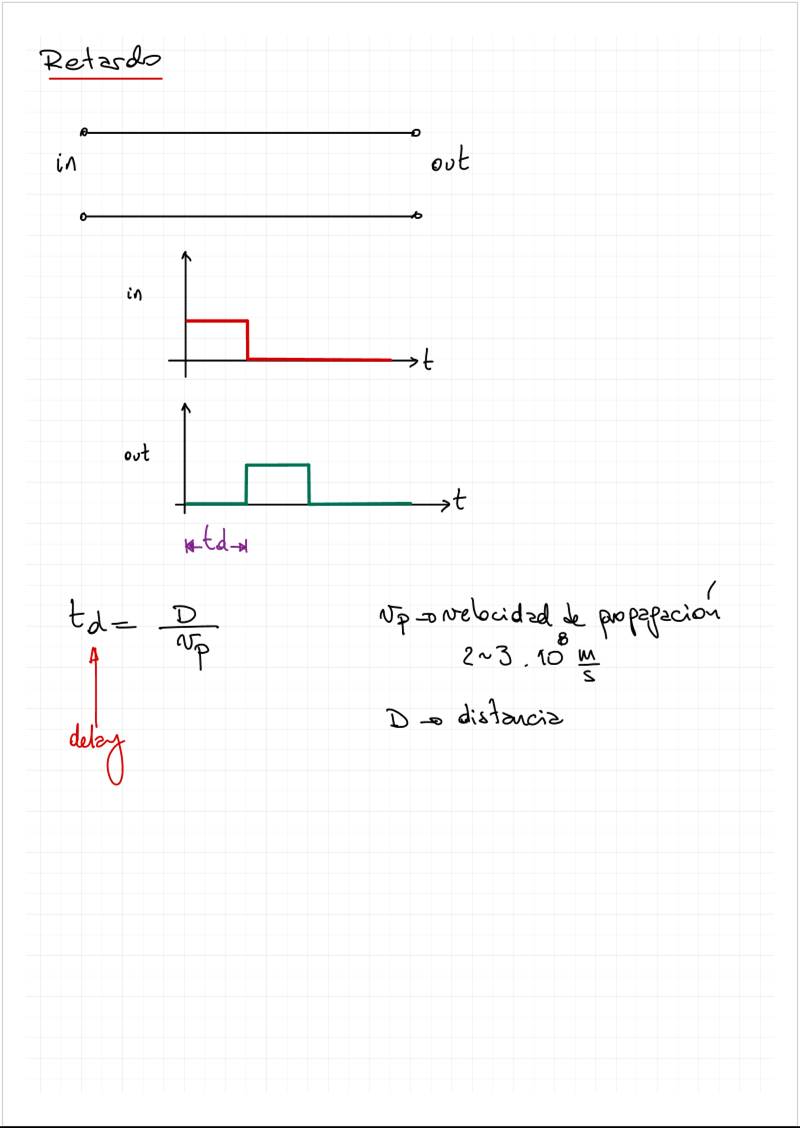 Retardo
in
out
in
t
out
t
td
td = D / vp
vp → velocidad de propagación
2~3 . 10⁸ m/s
delay
D → distancia